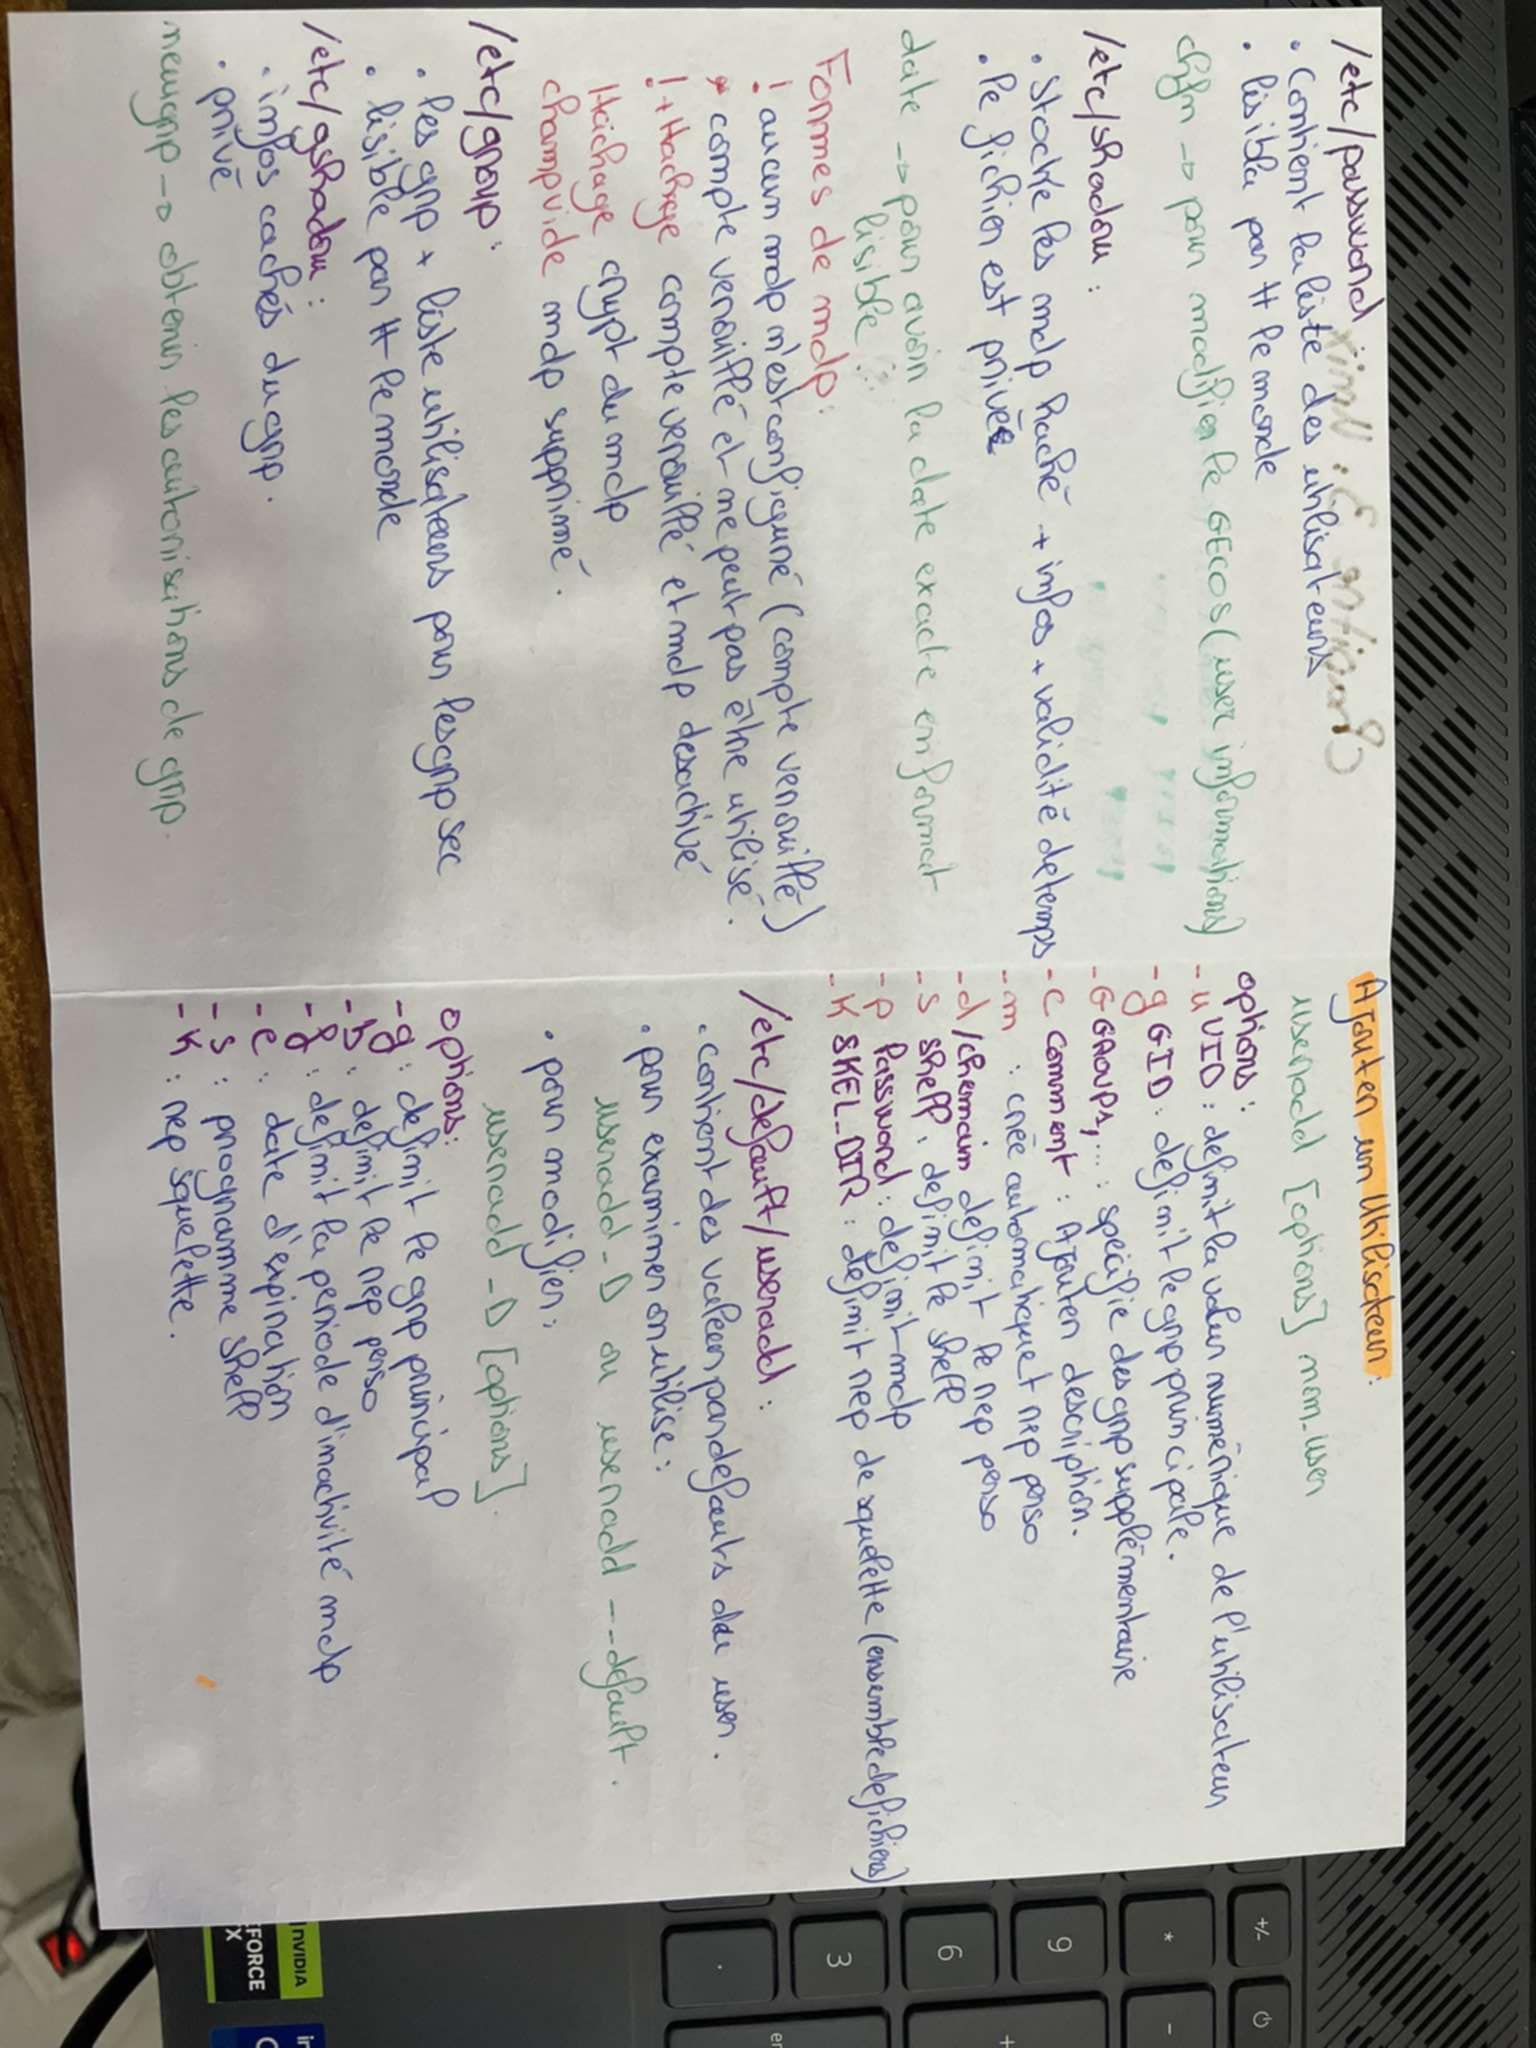 /etc/password :
• Contient la liste des utilisateurs
• lisible par tt le monde
chfn -> pour modifier le GECOS (user informations)
/etc/shadow :
• Stocke les mdp haché + infos + validité de temps
• le fichier est privé
date -> pour avoir la date exacte en format
lisible
Formes de mdp:
! aucun mdp n'est configuré (compte verouillé)
* compte verouillé et ne peut pas être utilisé.
! + Hachage compte verouillé et mdp desactivé
Hachage crypt du mdp
champ vide mdp supprimé.
/etc/group :
• les grp + liste utilisateurs pour les grp sec
• lisible par tt le monde
/etc/gshadow :
• infos cachés du grp.
• privé
newgrp -> obtenir les autorisations de grp.
Ajouter un Utilisateur :
useradd [options] nom_user
options :
-u UID : definit la valeur numérique de l'utilisateur
-g GID : definit le grp principale.
-G GROUPS,... : specifie des grp supplémentaire
-c comment : Ajouter description.
-m : crée automatiquet rep perso
-d /chemain definit le rep perso
-s shell : definit le shell
-p Password : definit mdp
-K SKEL_DIR : definit rep de squelette (ensemble de fichiers)
/etc/default/useradd :
• contient des valeur par defauts du user.
• pour examiner on utilise :
useradd -D ou useradd --default.
• pour modifier :
useradd -D [options].
options :
-g : definit le grp principal
-b : definit le rep perso
-f : definit la periode d'inactivité mdp
-e : date d'expiration
-s : programme shell
-K : rep squelette.
+/-
*
-
9
+
6
3
.
NVIDIA